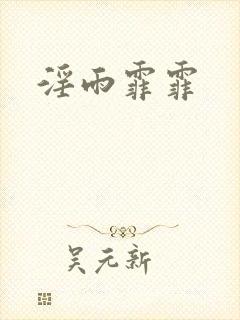 淫雨霏霏
吴元新